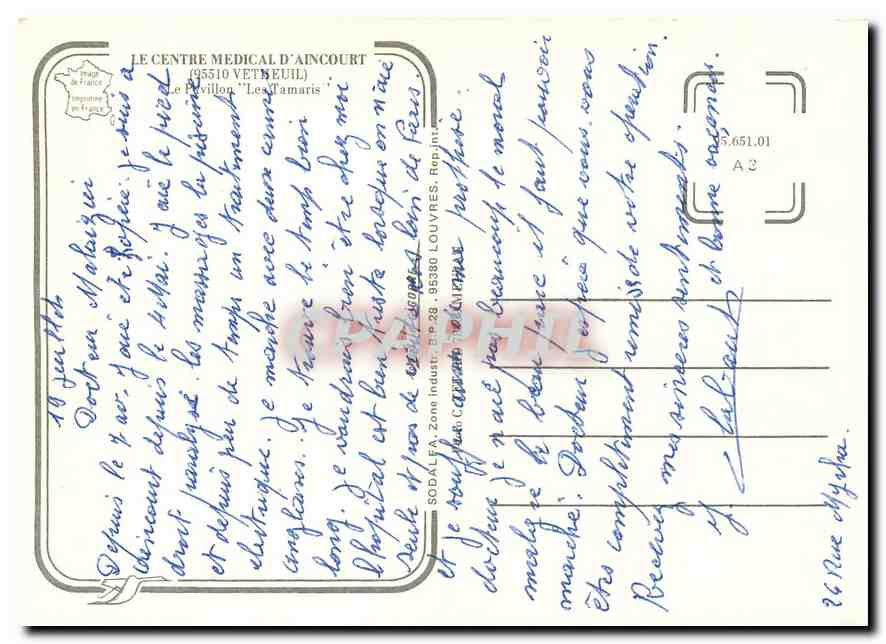 Image
de France
Imprimé
en France
LE CENTRE MEDICAL D'AINCOURT
(95510 VETHEUIL)
Le Pavillon "Les Tamaris"
95.651.01
A 2
SODALFA, Zone Industr. B.P.28 . 95380 LOUVRES. Rep.int.
CPA PHIL
19 juillet
Docteur
Depuis le 7 av. j'ai été opérée. je suis a
Aincourt depuis le 4 Mai. J'ai le pied
droit paralysé. les massages la piscine
et depuis peu de temps un traitement
électrique. Je marche avec deux cannes
anglaises. Je trouve le temps bien
long. Je voudrais bien être chez moi
l'hôpital est bien triste lorsque on n'aie
seule et pas de visites loin de Paris.
et je souffre avec ma prothèse.
docteur je n'aie pas beaucoup le moral
malgré le beau parc il faut pouvoir
marché. Docteur j'espère que vous. vous
êtes complètement remis de votre opération.
Recevez mes sincères sentiments.
et bonne vacances.
26 Rue Myrha.